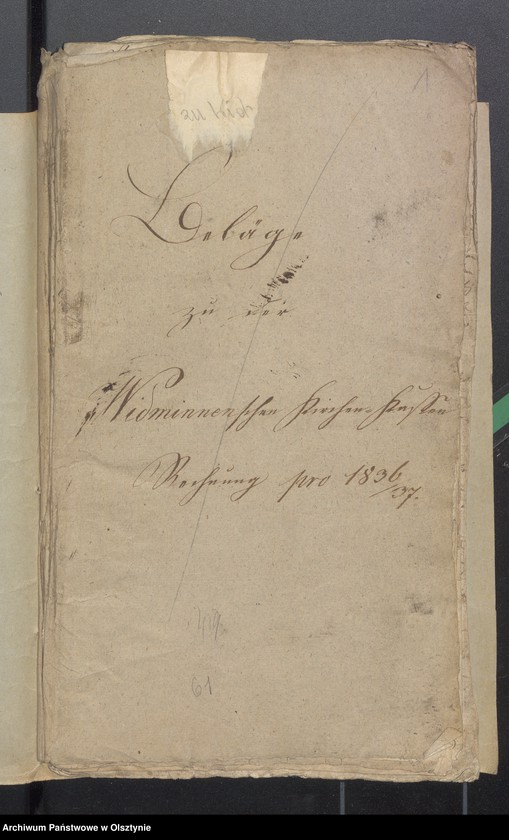 1
Beläge
zu der
Widminnenschen Kirchen-Kassen
Rechnung pro 1836/37.
61
Archiwum Państwowe w Olsztynie